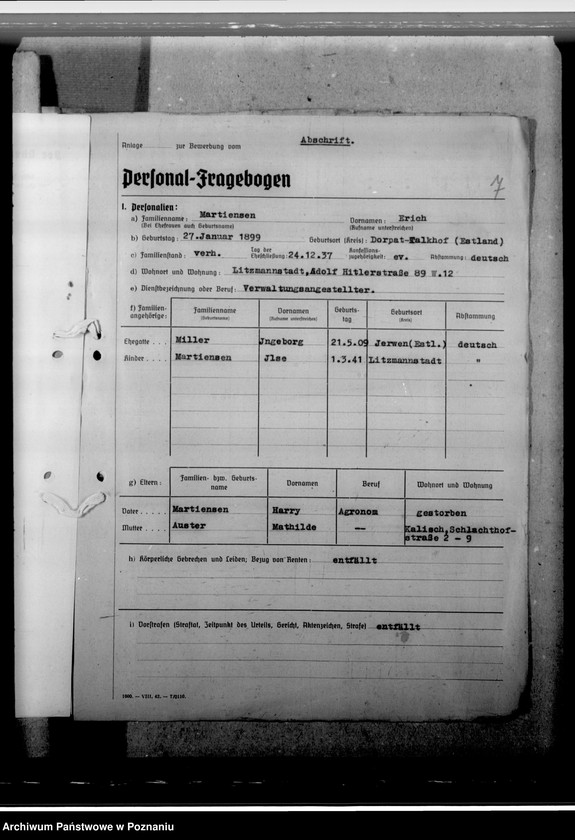 Abschrift.
Anlage zur Bewerbung vom
Personal-Fragebogen
7
I. Personalien:
a) Familienname: Martiensen Vornamen: Erich
(Bei Ehefrauen auch Geburtsname) (Rufname unterstreichen)
b) Geburtstag: 27.Januar 1899 Geburtsort (Kreis): Dorpat-Talkhof (Estland)
c) Familienstand: verh. Tag der Eheschließung 24.12.37 Konfessions-zugehörigkeit: ev. Abstammung: deutsch
d) Wohnort und Wohnung: Litzmannstadt,Adolf Hitlerstraße 89 W.12
e) Dienstbezeichnung oder Beruf: Verwaltungsangestellter.
f) Familien-angehörige: Familienname (Geburtsname) Vornamen (Rufname unterstreichen) Geburts-tag Geburtsort (Kreis) Abstammung
Ehegatte . . . Miller Jngeborg 21.5.09 Jerwen(Estl.) deutsch
Kinder . . . . Martiensen Jlse 1.3.41 Litzmannstadt "
g) Eltern: Familien- bzw. Geburts-name Vornamen Beruf Wohnort und Wohnung
Vater . . . . . Martiensen Harry Agronom gestorben
Mutter . . . . Auster Mathilde -- Kalisch,Schlachthof-
straße 2 - 9
h) Körperliche Gebrechen und Leiden; Bezug von Renten: entfällt
i) Vorstrafen (Straftat, Zeitpunkt des Urteils, Gericht, Aktenzeichen, Strafe) entfällt
Archiwum Państwowe w Poznaniu